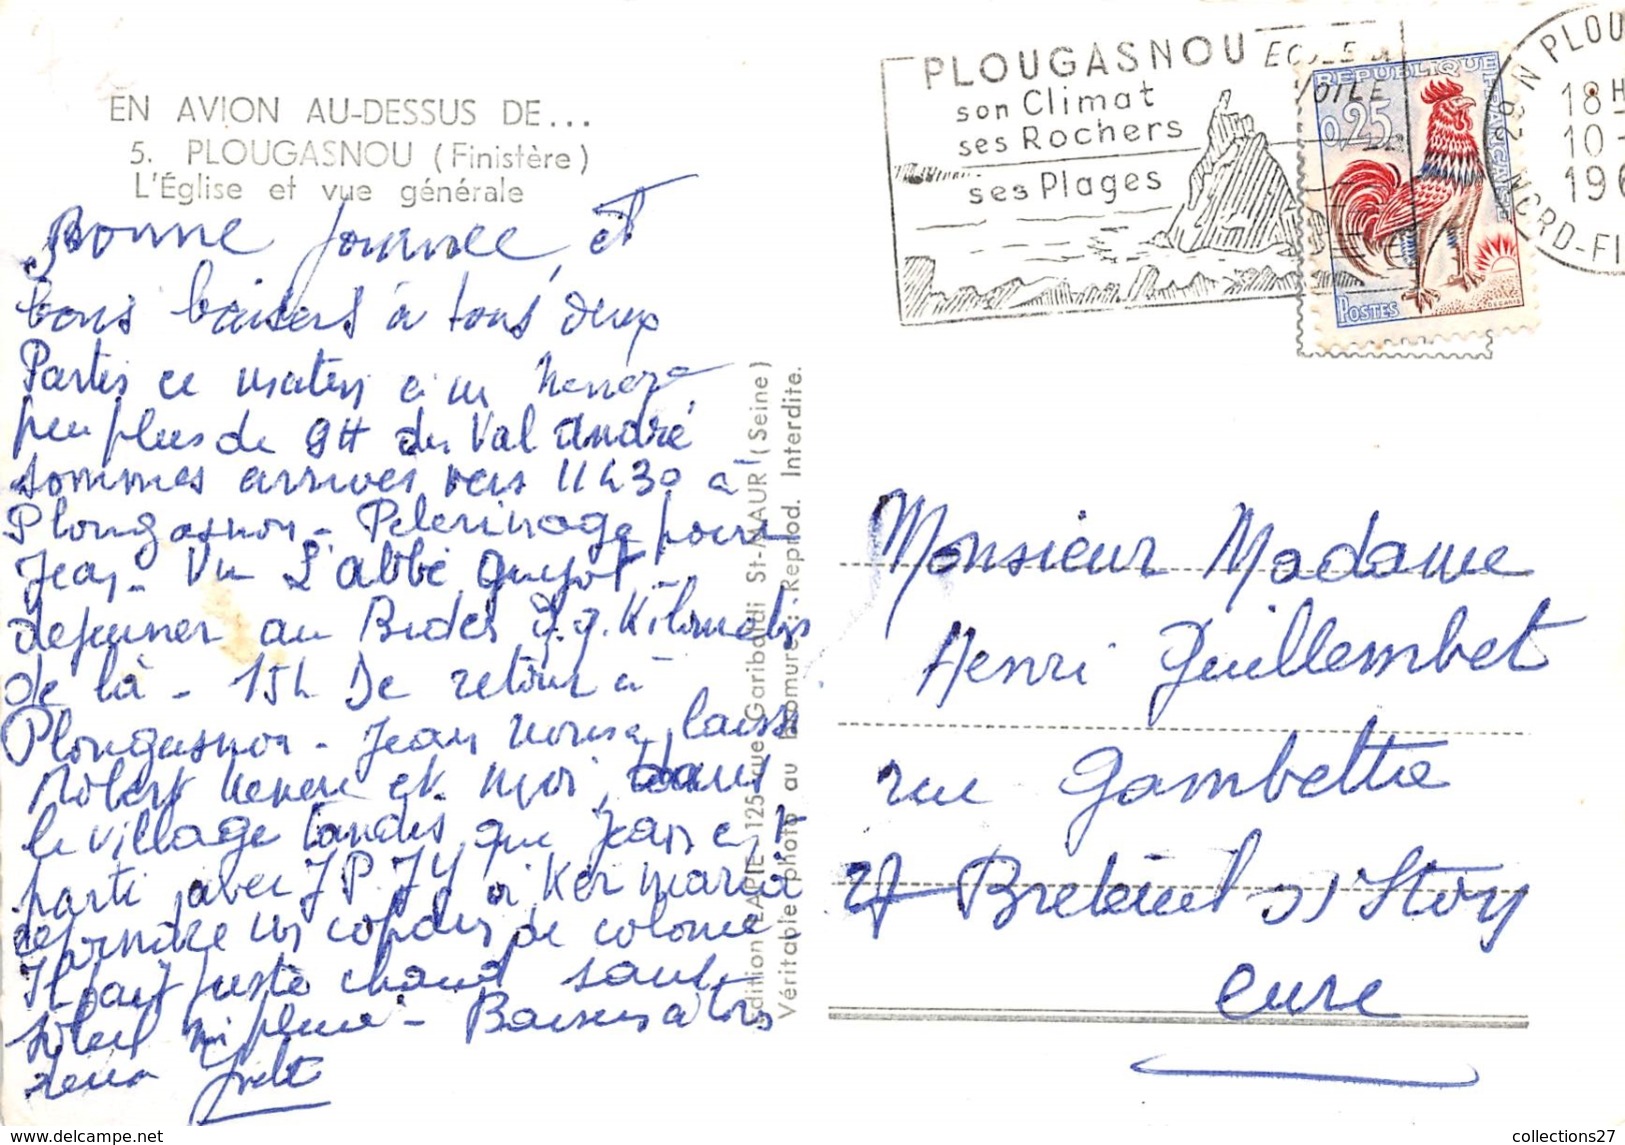 EN AVION AU-DESSUS DE...
5. PLOUGASNOU (Finistère)
L'Église et vue générale
Bonne journée, et
bons baisers à tous deux
Partis ce matin à
peu plus de 9H du Val André
sommes arrivés vers 11h30 à
Plougasnou - Pelerinage pour
Jean - Vu l'abbé Guyot
dejeuner au Kilometrs
de là - 15h De retour à
Plougasnou - Jean laisse
Robert et moi dans
le village tandis que Jean est
parti avec JP JY à Ker maria
de colonie
Il fait juste chaud sans
soleil ni pluie - Baisers à tous
PLOUGASNOU
son Climat
ses Rochers
ses Plages
ECOLE
VOILE
REPUBLIQUE FRANÇAISE
0,25
POSTES
DECARIS
29 N PLOU
18H
10-
196
NORD-FI
Edition LAPIE - 125 rue Garibaldi St-MAUR (Seine)
Véritable photo au bromure : Reprod. Interdite.
Monsieur Madame
Henri Guillembet
rue Gambetta
27 Breteuil s/ Iton
Eure
collections27